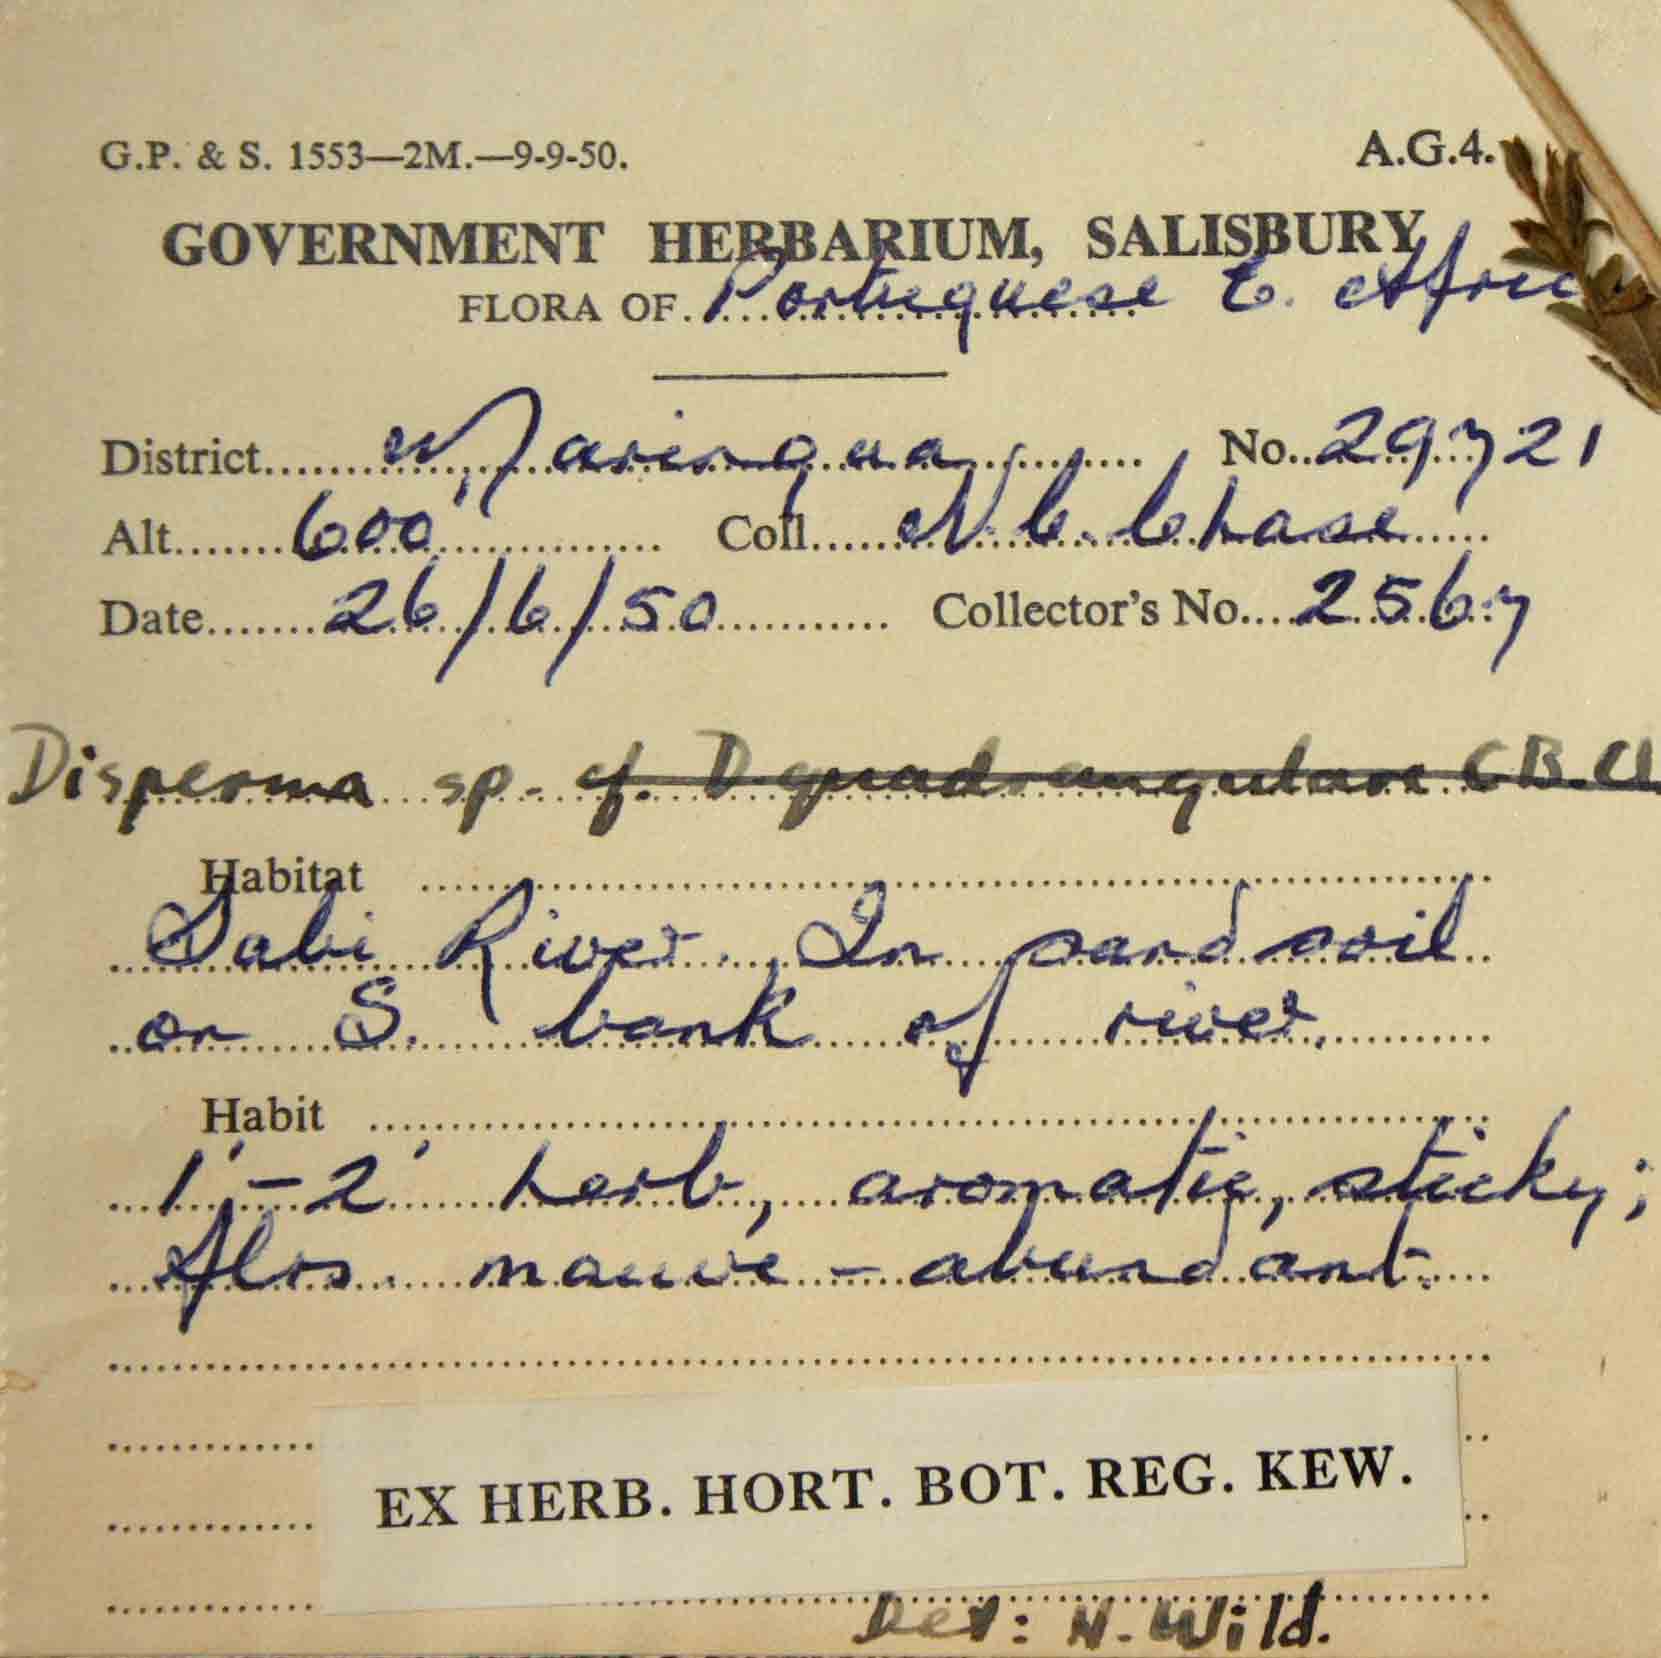 G.P. & S. 1553—2M.—9-9-50. A.G.4.
GOVERNMENT HERBARIUM, SALISBURY
FLORA OF Portuguese E. Afric
District Maringua No. 29721
Alt. 600' Coll. N.C. Chase
Date 26/6/50 Collector's No. 2567
Disperma sp. cf. D. quadrangulare C.B.Cl
Habitat
Sabi River. In sand soil
on S. bank of river.
Habit
1'-2' herb, aromatic, sticky;
flrs. mauve - abundant.
EX HERB. HORT. BOT. REG. KEW.
Det: H. Wild.